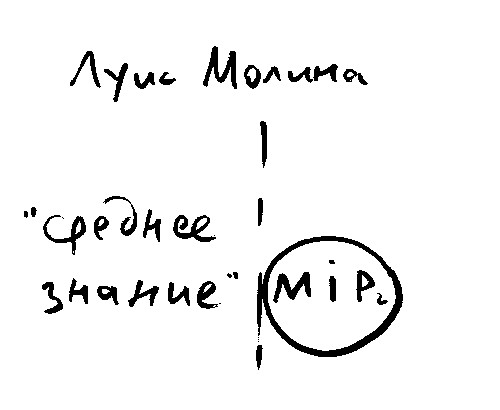 Луис Молина
"среднее
знание" MiP₂